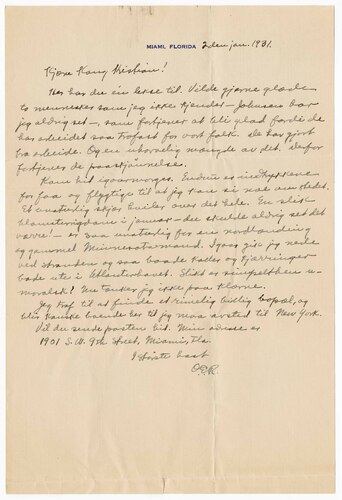 MIAMI, FLORIDA 2den jan. 1931.
Kjære Kong Kristian!
Her har du en lekse til. Vilde gjerne glæde
to mennesker som jeg ikke kjender — Johnson har
jeg aldrig set —, som fortjener at bli glad fordi de
har arbeidet saa trofast for vort folk. De har gjort
bra arbeide. Og en utrolig mængde av det. Derfor
fortjener de paaskjønnelse.
Kom hit igaarmorges. Endnu er indtrykkene
for faa og flygtige til at jeg kan si noe om stedet.
Et eventyrlig skjær hviler over det hele. En slik
blomsterigdom i januar — den skulde aldrig set det
værre! — er saa unaturlig for en nordlænding
og gammel Minnesotamand. Igaar gik jeg nede
ved stranden og saa baade kaller og kjærringer
bade ute i Atlanterhavet. Slikt er simpelthen u-
moralsk! Nu tænker jeg ikke paa klærne.
Jeg traf til at finde et rimelig billig bopæl, og
blir kanske boende her til jeg maa avsted til New York.
Vil du sende posten hit. Min adresse er
1901 S.W. 9th Street, Miami, Fla.
I største hast
O.E.R.